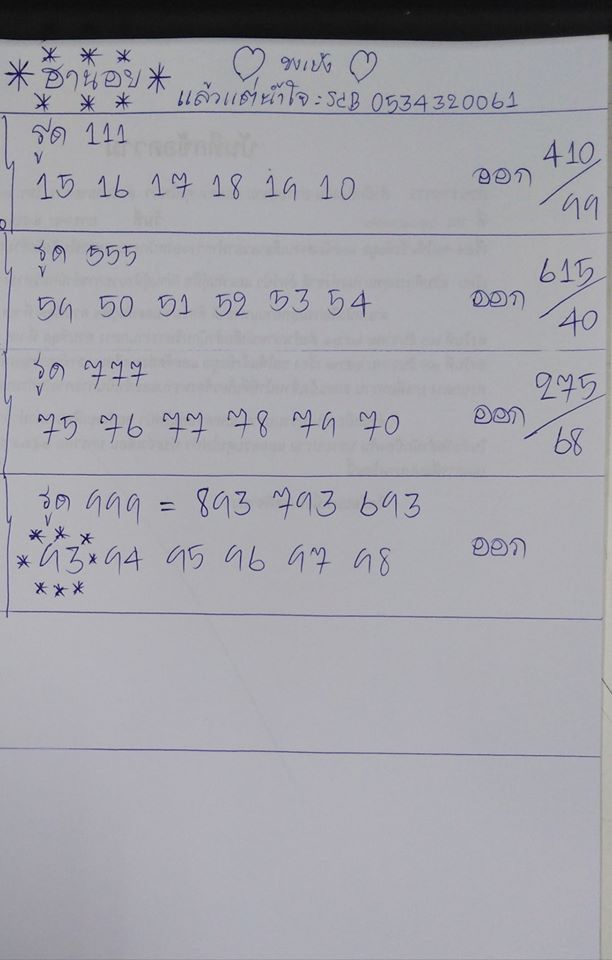 * * *
*ฮานอย* ♡ ขงเบ้ง ♡
* * * แล้วแต่น้ำใจ : SCB 0534320061
รูด 111
15 16 17 18 19 10 ออก 410/99
รูด 555
59 50 51 52 53 54 ออก 615/40
รูด 777
75 76 77 78 79 70 ออก 275/68
รูด 999 = 893 793 693
* * *
*93* 94 95 96 97 98 ออก
* * *